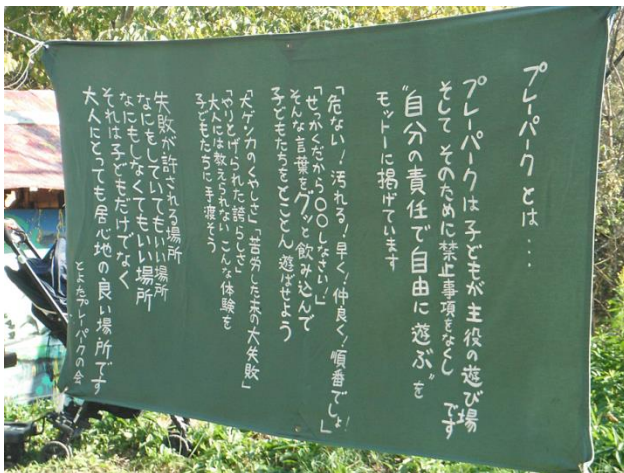 プレーパークとは・・・
プレーパークは子どもが主役の遊び場です
そして そのために禁止事項をなくし
"自分の責任で自由に遊ぶ"を
モットーに掲げています
「危ない！汚れる！早く！仲良く！順番でしょ！」
「せっかくだから〇〇しなさい！」
そんな言葉をグッと飲み込んで
子どもたちをとことん遊ばせよう
「大ゲンカのくやしさ」「苦労した末の大失敗」
「やりとげられた誇らしさ」
大人には教えられない こんな体験を
子どもたちに手渡そう
失敗が許される場所
なにをしていてもいい場所
なにもしなくてもいい場所
それは子どもだけでなく
大人にとっても居心地の良い場所です
とよたプレーパークの会